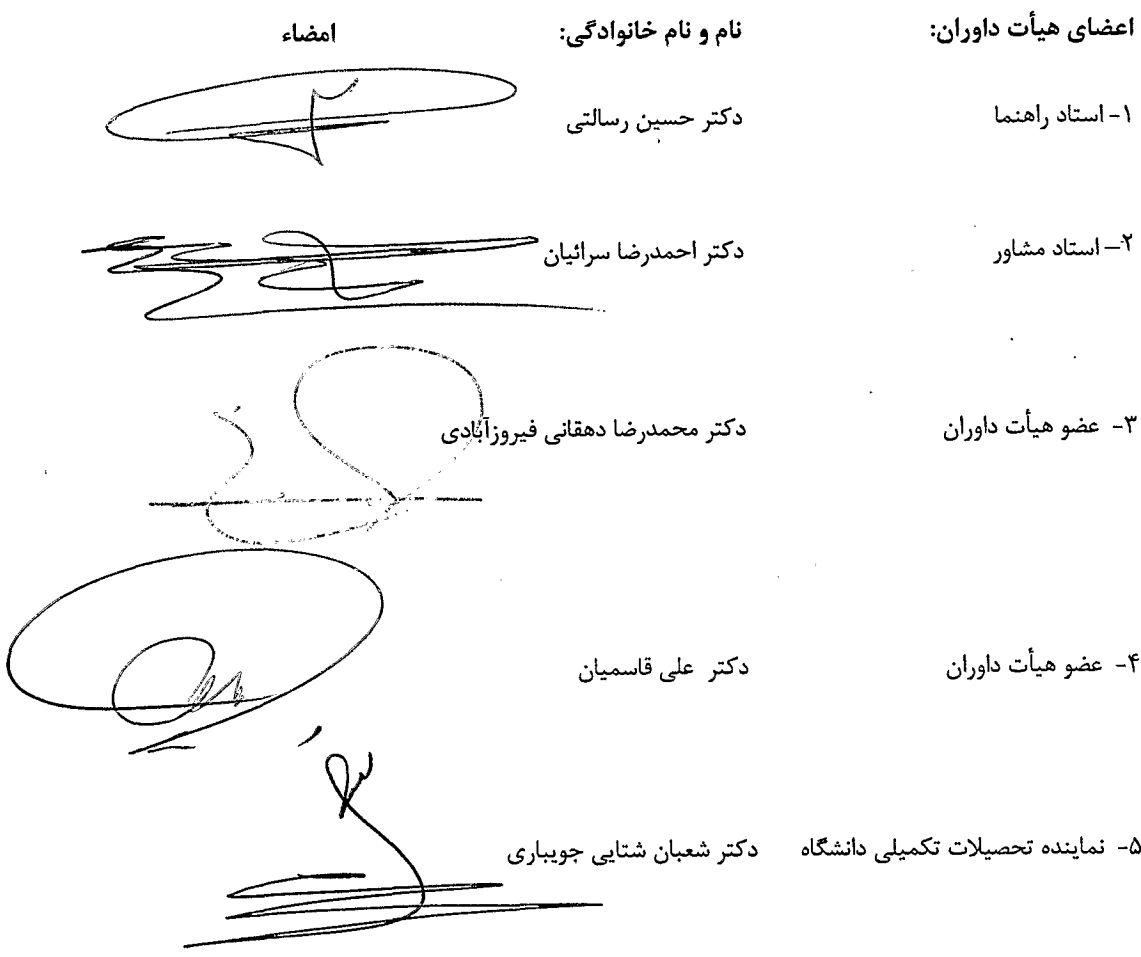 اعضای هیأت داوران: نام و نام خانوادگی: امضاء
۱- استاد راهنما دکتر حسین رسالتی
۲– استاد مشاور دکتر احمدرضا سرائیان
۳- عضو هیأت داوران دکتر محمدرضا دهقانی فیروزآبادی
۴- عضو هیأت داوران دکتر علی قاسمیان
۵- نماینده تحصیلات تکمیلی دانشگاه دکتر شعبان شتایی جویباری